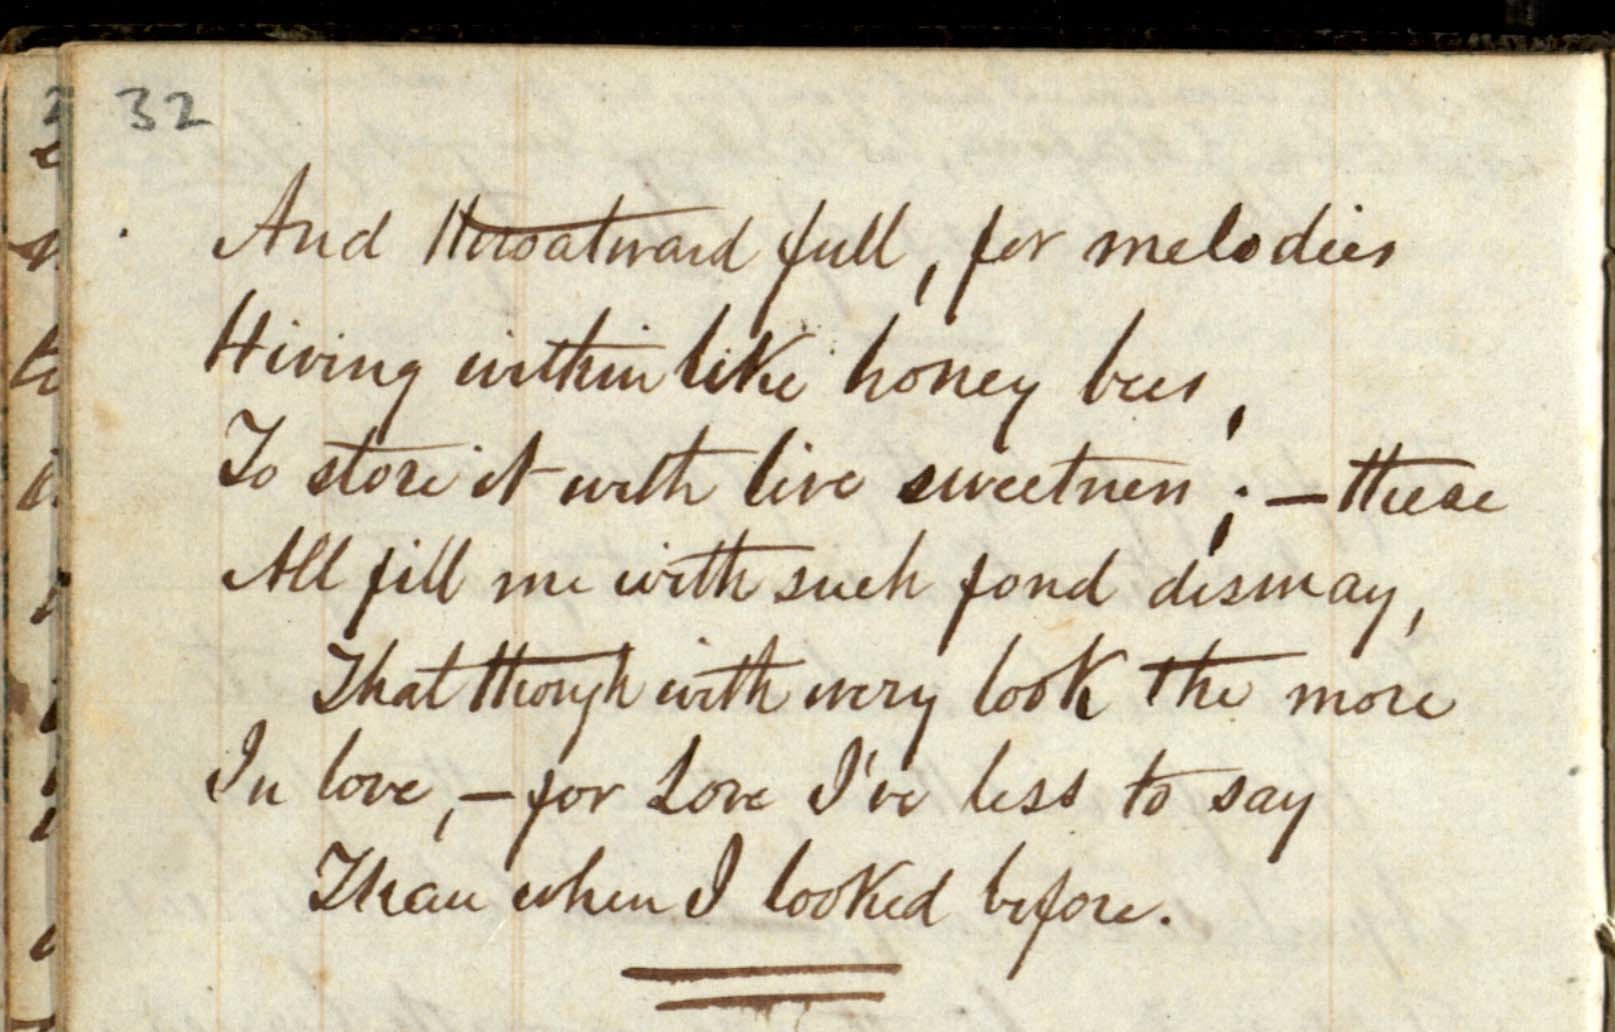 32
And throatward full, for melodies
Hiving within like honey bees,
To store it with live sweetness; — these
All fill me with such fond dismay,
That though with every look the more
In love, — for Love I've less to say
Than when I looked before.